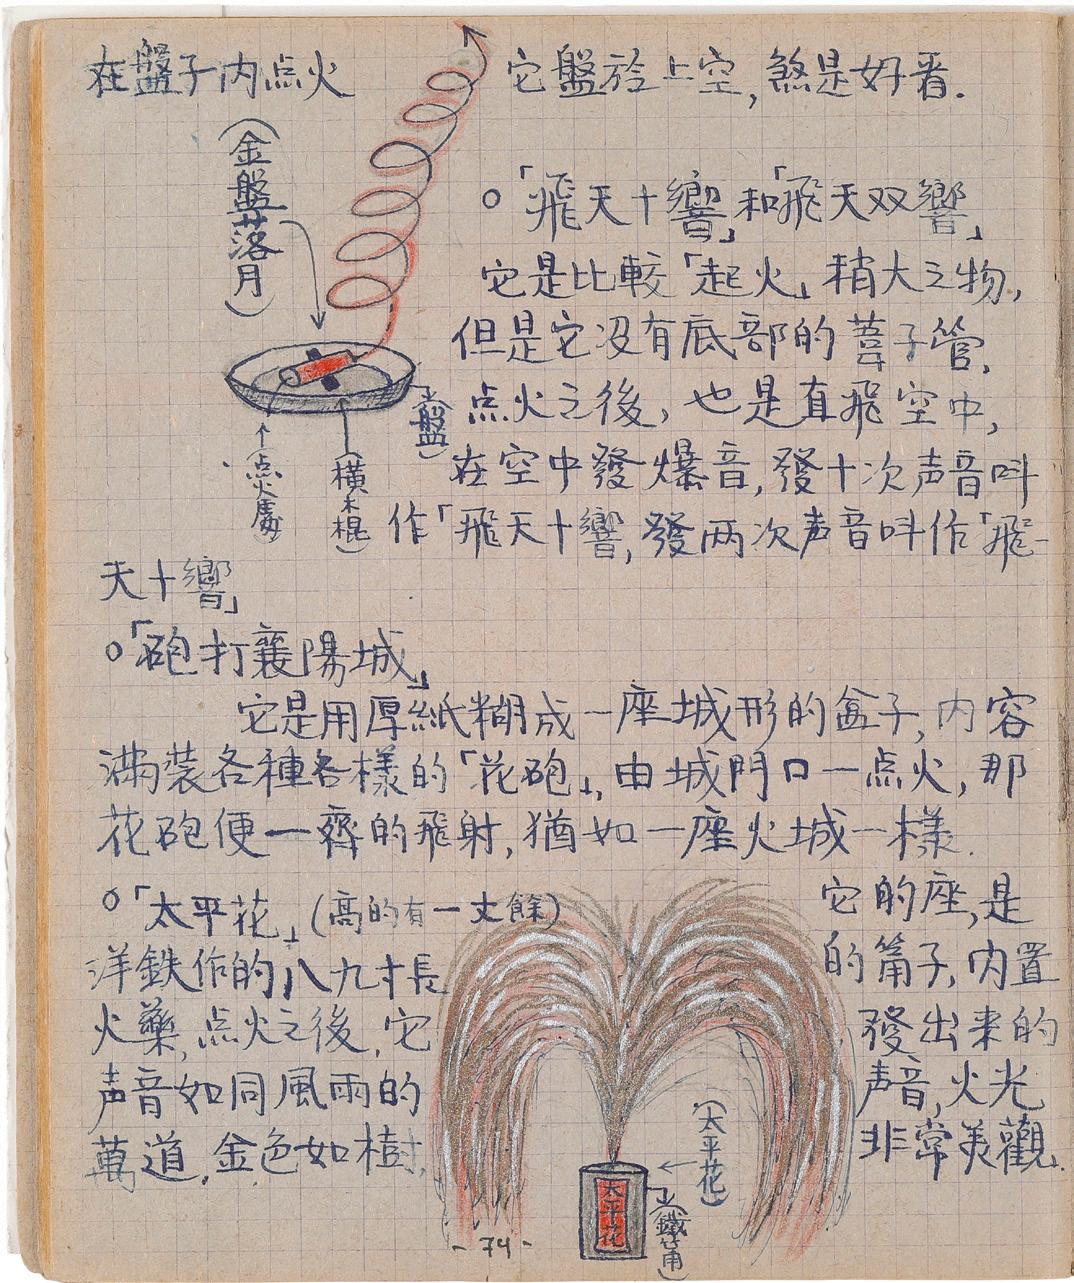 在盤子内点火
它盤於上空,煞是好看.
(金盤落月)
o「飛天十響」和「飛天双響」
它是比較「起火」稍大之物,
但是它没有底部的葦子管,
点火之後,也是直飛空中,
(盤)
在空中發爆音,發十次声音叫
(点火處
(横木棍)
作「飛天十響,發两次声音叫作「飛-
天十響」
o「砲打襄陽城」
它是用厚紙糊成一座城形的盒子,内容
满装各種各樣的「花砲」,由城門口一点火,那
花砲便一齊的飛射,猶如一座火城一樣.
o「太平花」(高的有一丈餘)
它的座,是
洋鉄作的,八九寸長
的筩子,内置
火藥,点火之後,它
發出来的
声音如同風雨的
声音,火光
萬道,金色如樹,
非常美觀.
(太平花)
太平花
(鐵筩)
-74-